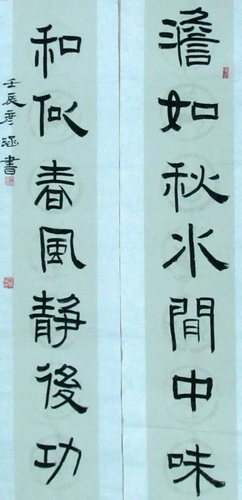 澹如秋水閒中味
和似春風靜後功
壬辰彦涵書